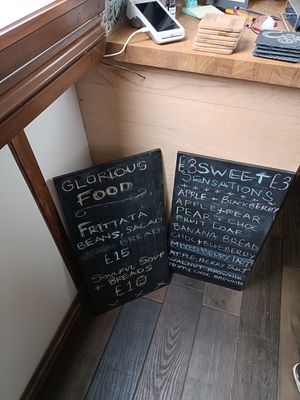 GLORIOUS
FOOD
FRITTATA
BEANS, SALAD
BREAD
£15
SOULFUL SOUP
+ BREADS
£10
£3 SWEET £3
SENSATIONS
APPLE + BLACKBERRY
APPLE + PEAR
PEAR + CHOC
FRUIT LOAF
BANANA BREAD
CHOC + BLUEBERRY
MIXED BERRY TART
APPLE, BERRY TART
WALNUT BROWNIE
TRIPPLE CHOC BROWNIE